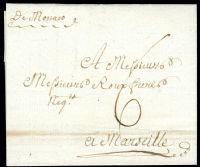 De Monaco
A Messieurs
Messieurs Roux freres
Negts
6
a Marseille